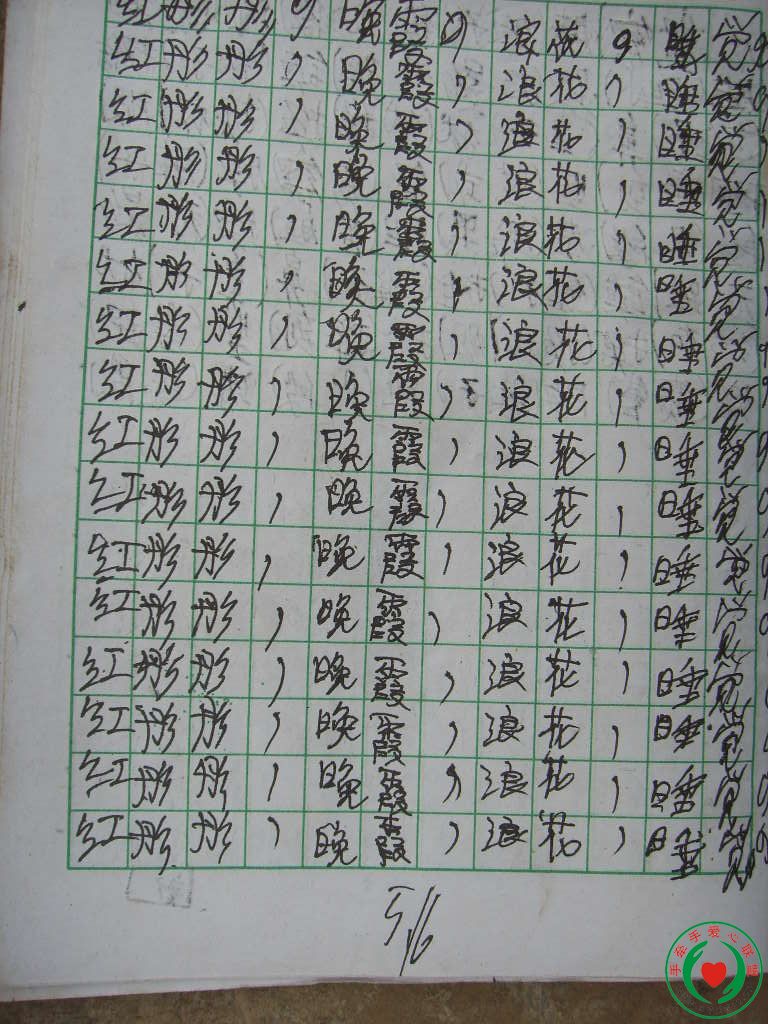 红彤彤，晚霞，浪花，睡觉，
红彤彤，晚霞，浪花，睡觉，
红彤彤，晚霞，浪花，睡觉，
红彤彤，晚霞，浪花，睡觉，
红彤彤，晚霞，浪花，睡觉，
红彤彤，晚霞，浪花，睡觉，
红彤彤，晚霞，浪花，睡觉，
红彤彤，晚霞，浪花，睡觉，
红彤彤，晚霞，浪花，睡觉，
红彤彤，晚霞，浪花，睡觉，
红彤彤，晚霞，浪花，睡觉，
红彤彤，晚霞，浪花，睡觉，
红彤彤，晚霞，浪花，睡觉，
红彤彤，晚霞，浪花，睡觉，
红彤彤，晚霞，浪花，睡觉，
红彤彤，晚霞，浪花，睡觉，
手牵手爱心联盟